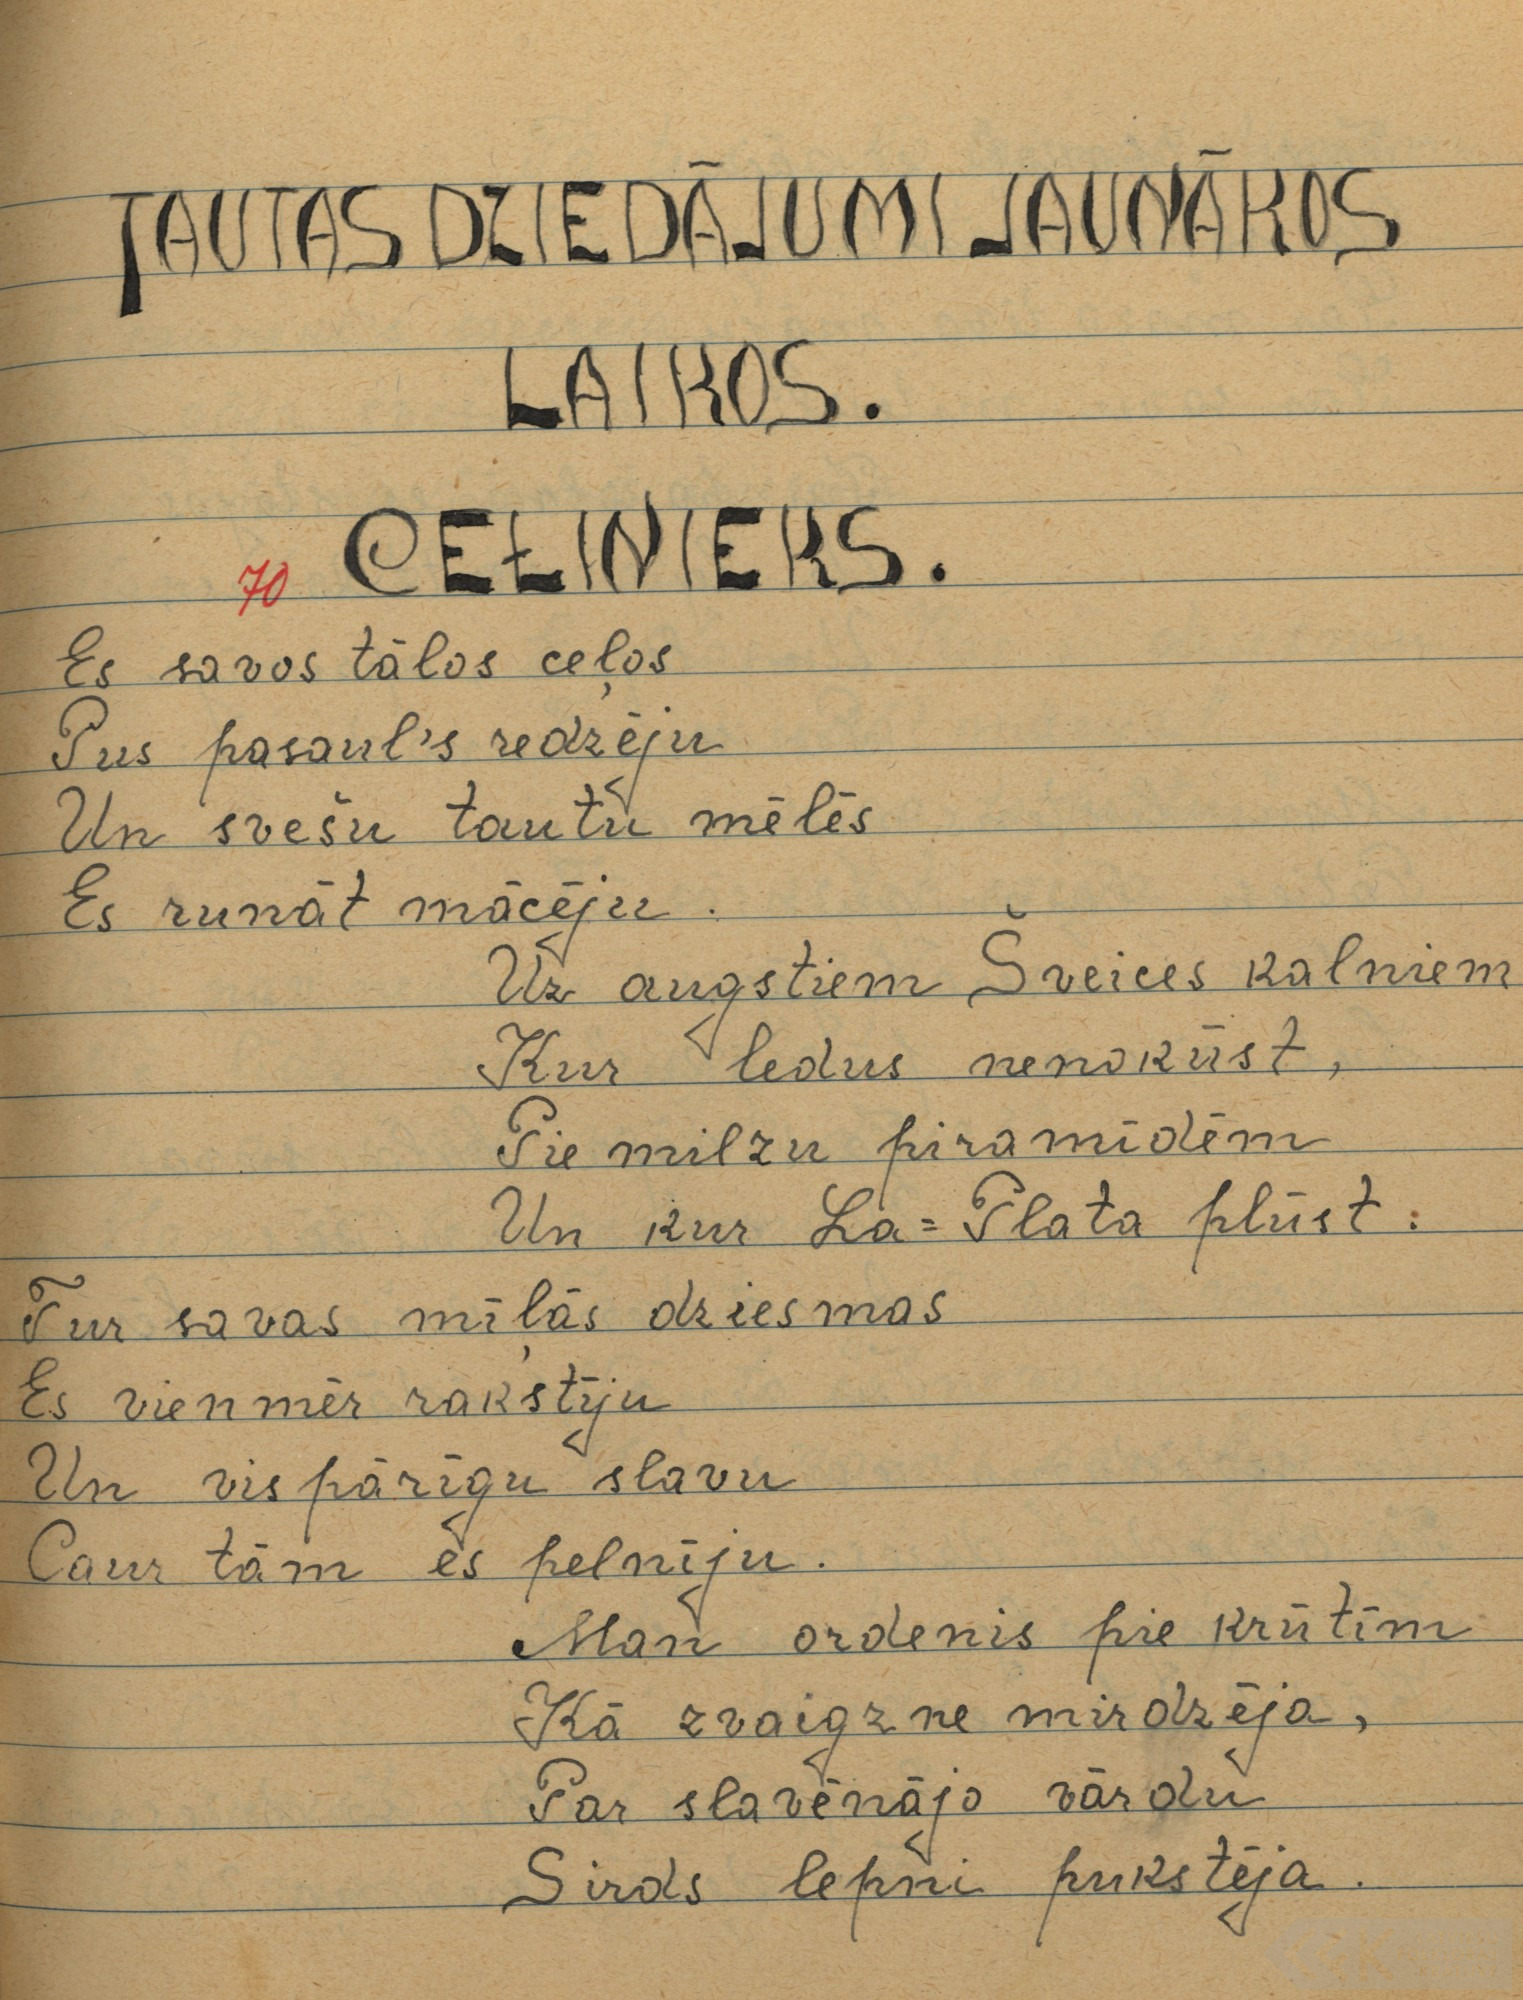 TAUTAS DZIEDĀJUMI JAUNĀKOS
LAIKOS.
70 CEŁINIEKS.
Es savos tālos ceļos
Pus pasaul's redzēju
Un svešu tautu mēlēs
Es runāt mācēju.
Uz augstiem Šveices kalniem
Kur ledus nenokūst,
Pie milzu piramīdēm
Un kur La=Plata plūst.
Tur savas mīļās dziesmas
Es vienmēr rakstīju
Un vispārīgu slavu
Caur tām es pelnīju.
Man ordenis pie krūtīm
Kā zvaigzne mirdzēja,
Par slavēnājo vārdu
Sirds lepni pukstēja.